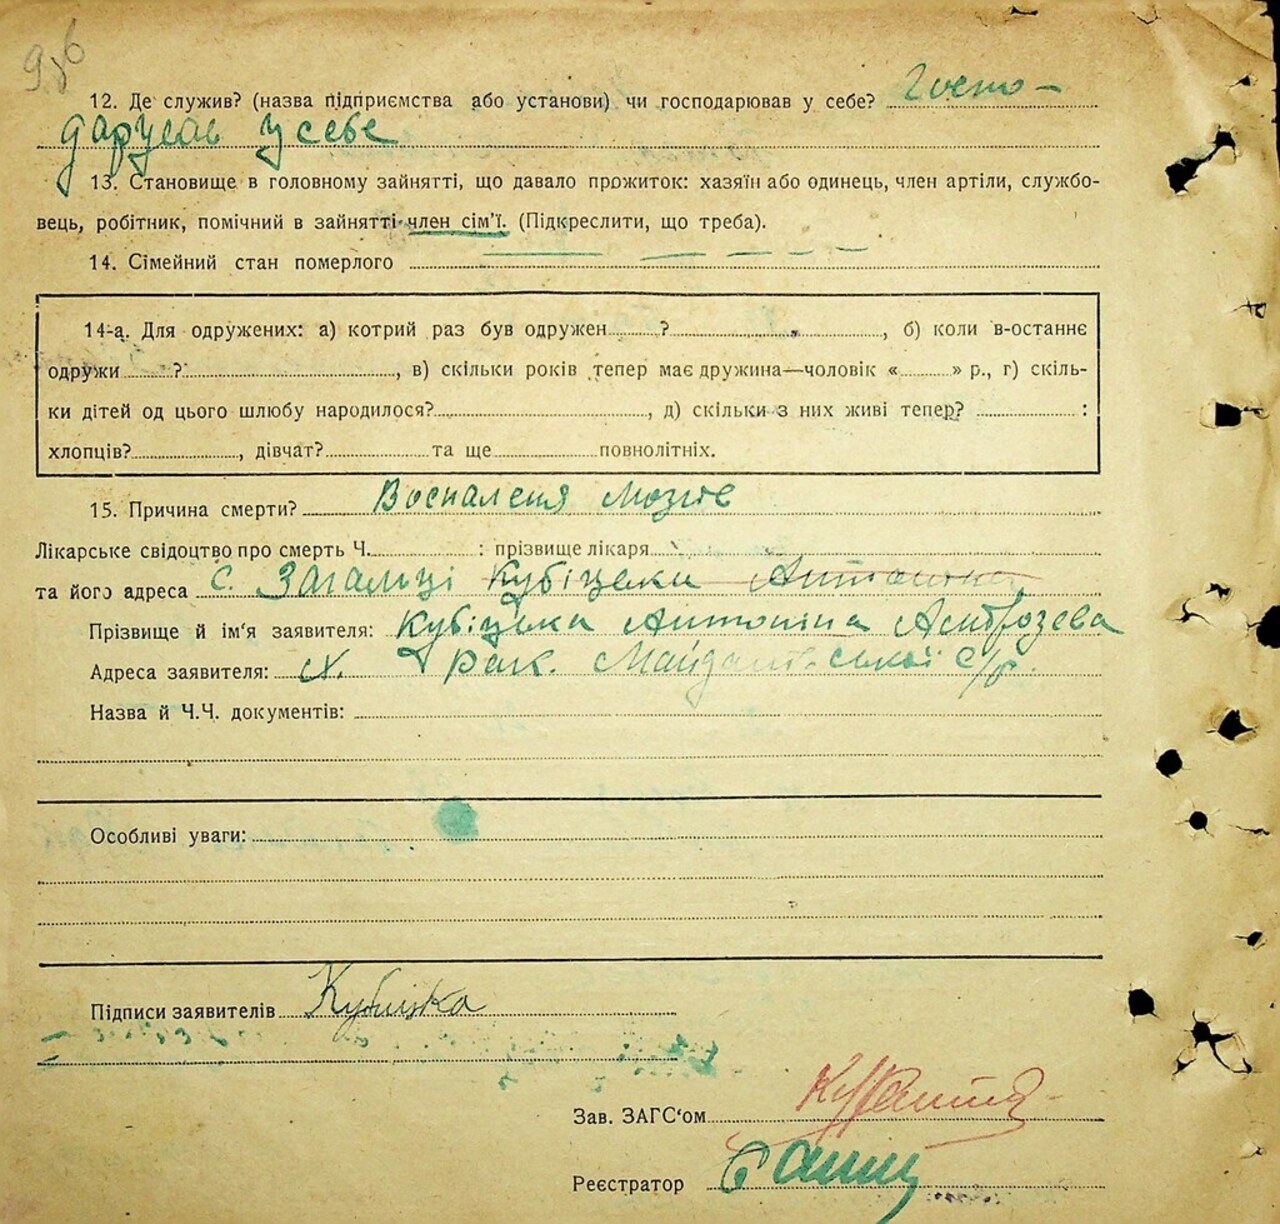 12. Де служив? (назва підприємства або установи) чи господарював у себе? Госпо-
дарував у себе
13. Становище в головному зайнятті, що давало прожиток: хазяїн або одинець, член артіли, службо-
вець, робітник, помічний в зайнятті член сім'ї. (Підкреслити, що треба).
14. Сімейний стан померлого
14-а. Для одружених: а) котрий раз був одружен ? , б) коли в-останнє
одружи ? , в) скільки років тепер має дружина—чоловік « » р., г) скіль-
ки дітей од цього шлюбу народилося? , д) скільки з них живі тепер? :
хлопців? , дівчат? та ще повнолітніх.
15. Причина смерти? Воспаленя мозгів
Лікарське свідоцтво про смерть Ч. : прізвище лікаря
та його адреса с. Загальці Кубіцька Антоніна
Прізвище й ім'я заявителя: Кубіцька Антоніна Амброзева
Адреса заявителя: х. Рак. Майданівської с/р.
Назва й Ч.Ч. документів:
Особливі уваги:
Підписи заявителів Кубіцка
Зав. ЗАГС'ом
Реєстратор